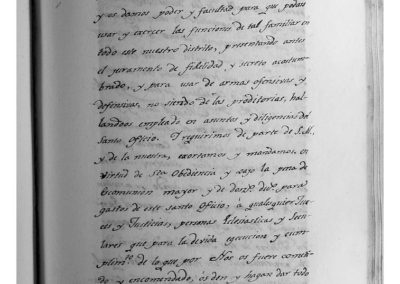 y os damos poder y facultad para que podais
usar y exercer las funciones de tal familiar en
todo este nuestro distrito, presentando antes
el juramento de fidelidad y secreto acostum-
brado, y para usar de armas ofensivas y
defensivas, no siendo de las proditorias, hal-
landoos empleado en asuntos y diligencias del
Santo Oficio. I requirimos de parte de S.M.
y de la nuestra, exortamos y mandamos, en
virtud de Sta Obediencia y vajo la pena de
Excomunion mayor y de para
gastos de este santo Oficio, à qualesquier Jue-
ces y Justicias, personas Eclesiasticas y Secu-
lares que para la devida egecucion y cum-
plimto de lo que por Nos os fuere cometi-
do y encomendado, os den y hagan dar todo